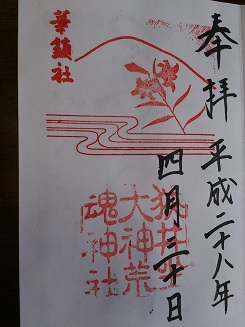 奉拝
平成二十八年
四月三十日
華鎮社
狭井坐
大神荒
魂神社